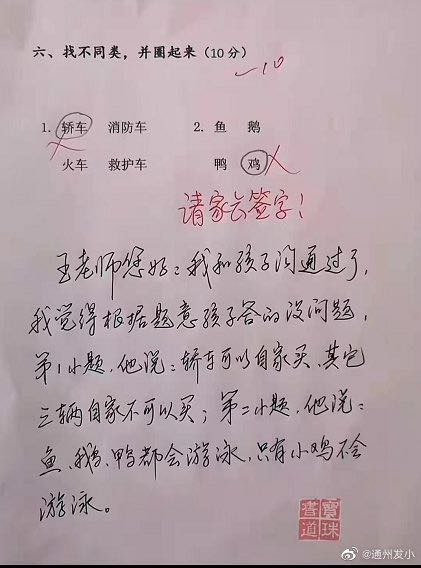 六、找不同类，并圈起来（10分）
-10
1. 轿车 消防车 2. 鱼 鹅
火车 救护车 鸭 鸡
请家长签字！
王老师您好：我和孩子沟通过了，
我觉得根据题意孩子答的没问题，
第1小题，他说：轿车可以自家买，其它
三辆自家不可以买；第二小题，他说：
鱼、鹅、鸭都会游泳，只有小鸡不会
游泳。
寶珠書道
@通州发小